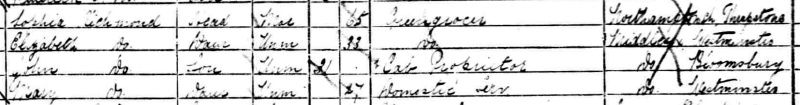 Sophia Richmond Head Wid 65 Greengrocer Northampton Thrapstone
Elizabeth Do Daur Unm 33 Do Middlesex Westminster
John Do Son Unm 31 Cab Proprietor Do Bloomsbury
Mary Do Daur Unm 27 Domestic Serv Do Westminster